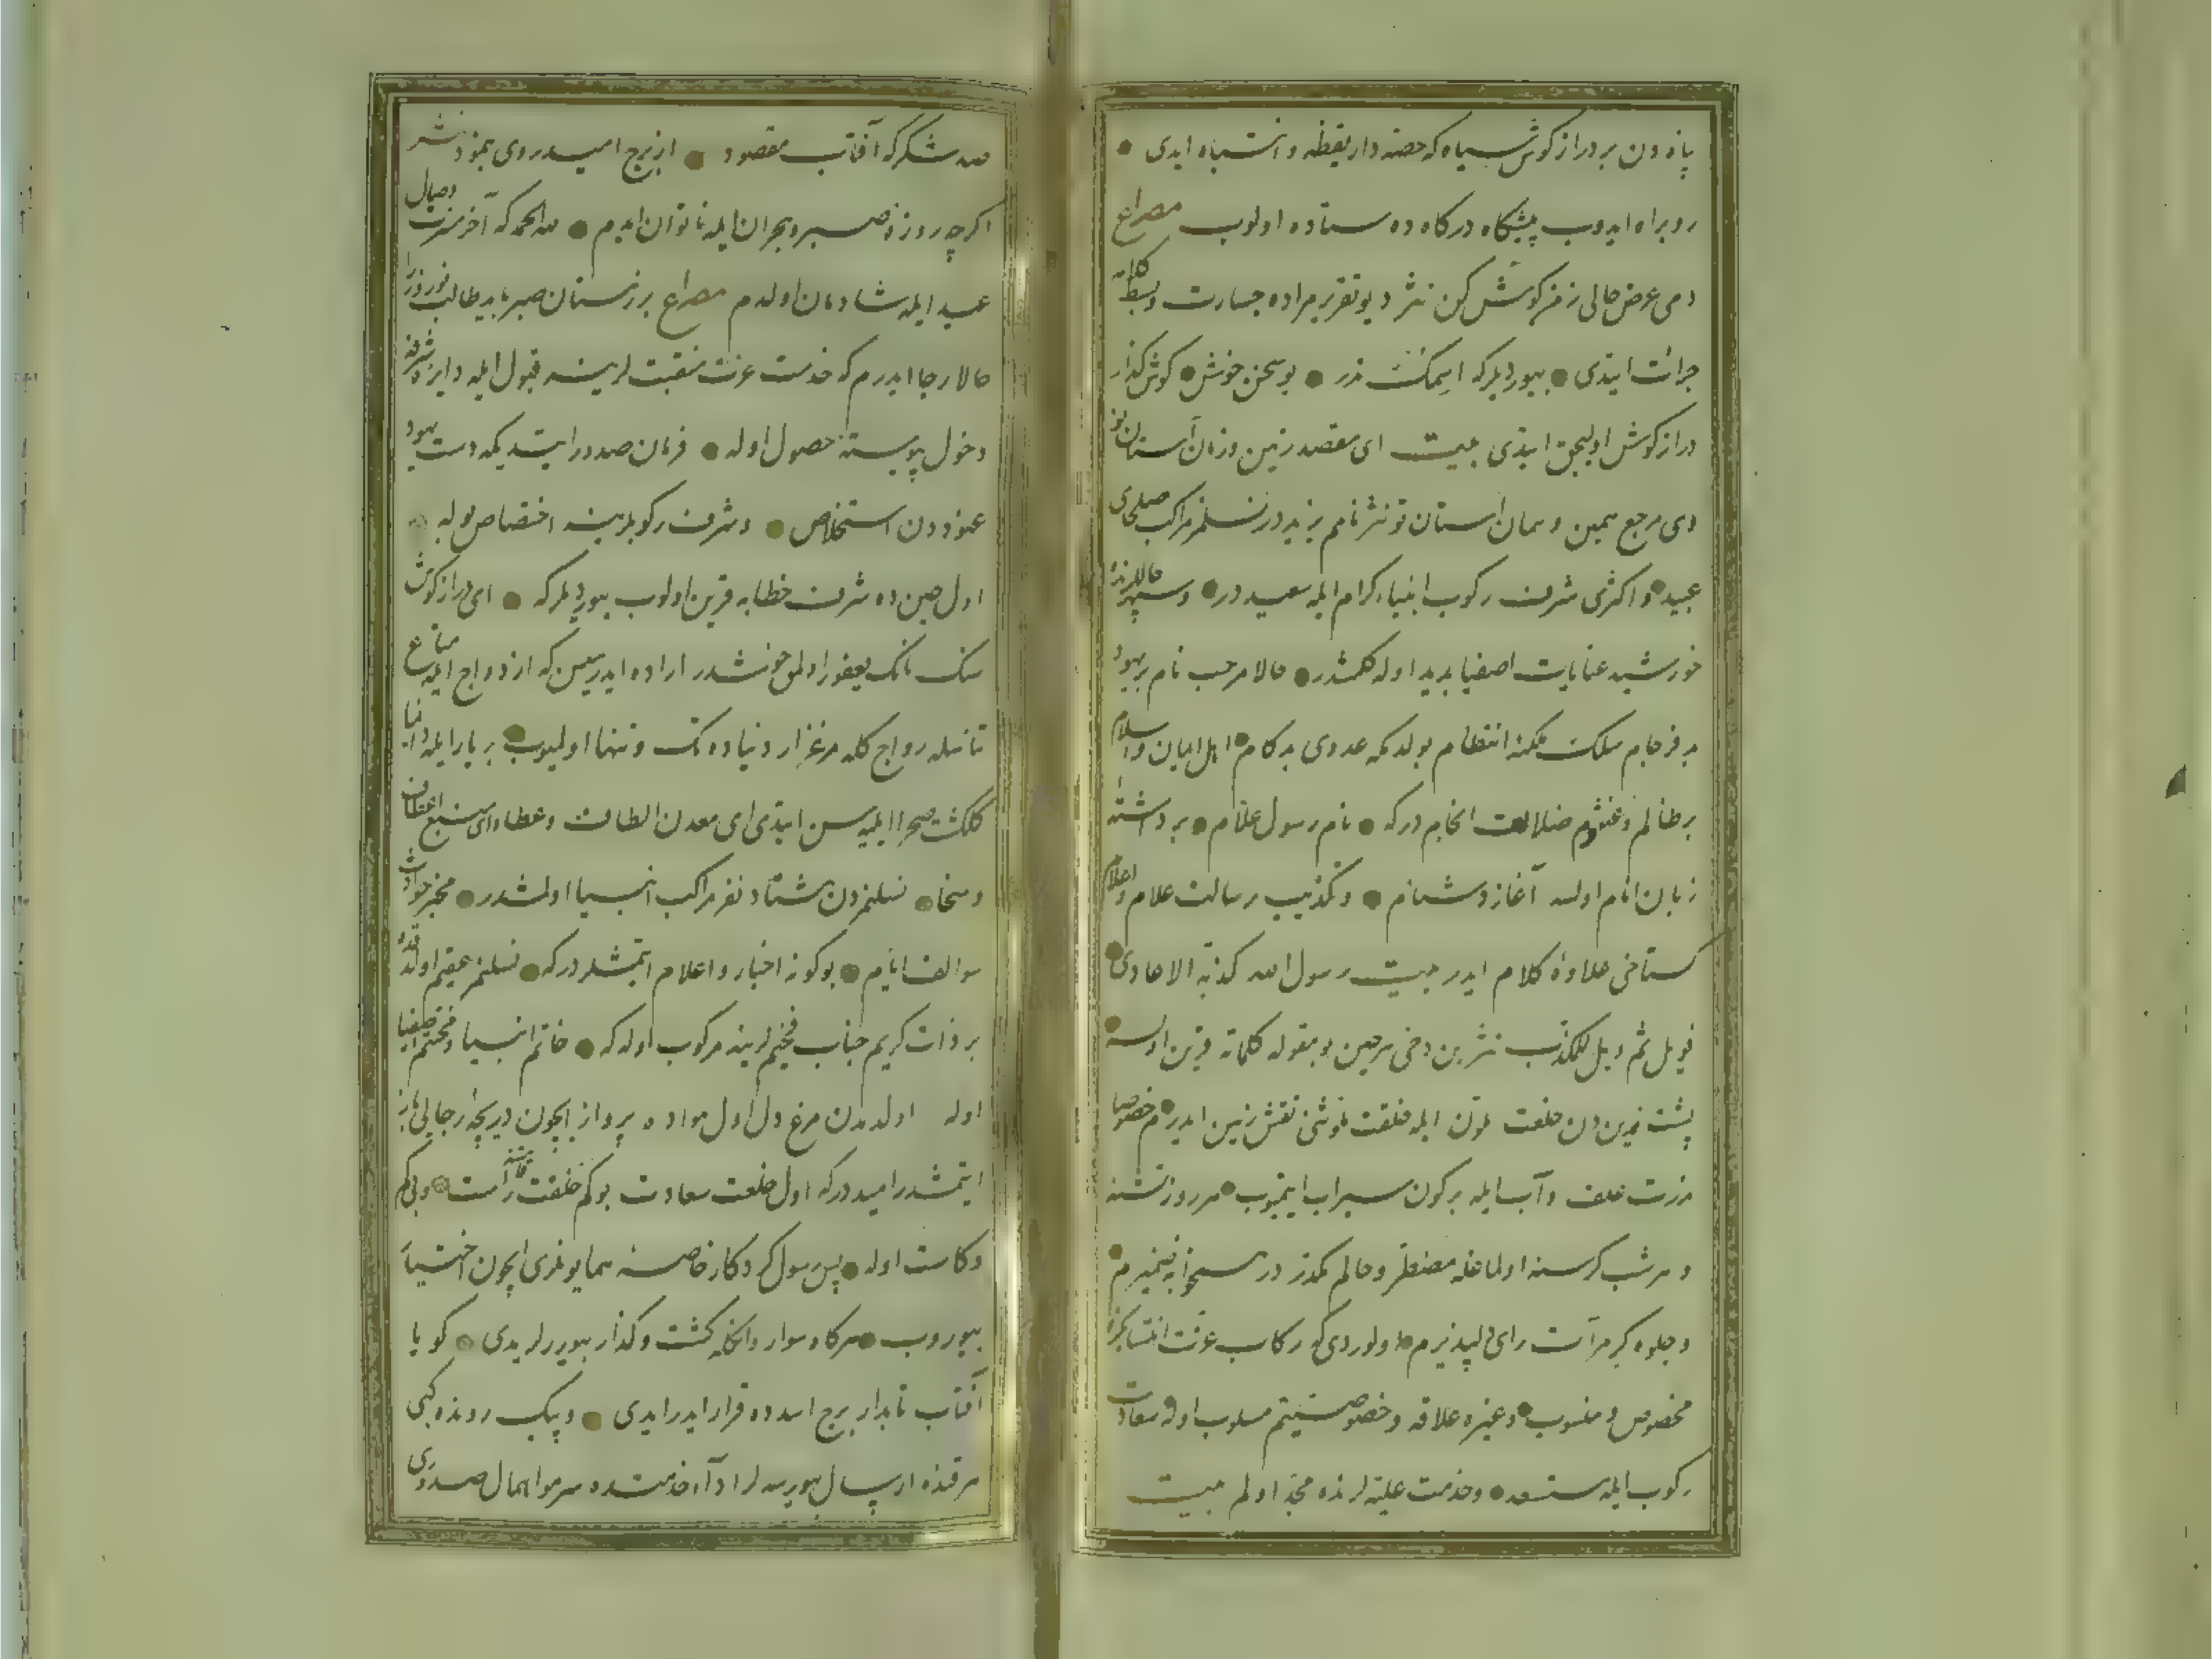 پازدن بر دراز کوش سیاه که حصه دار یقظه و انتباه ایدی
رو براه ایدوب پیشکاه درکاه ده ستاده اولوب مصراع
دمی عرض حالی ز من کوش کن نثر دیو تقریر مراده جسارت و بسط کلامه
جرأت ایتدی بیوردیلر که اسمک ندر بو سخن خوش کوش کذار
دراز کوش اولیجق ایتدی بیت ای مقصد زمین و زمان آستان تو
وی مرجع همین و همان استان تو نثر نامم یزید در نسلمز مراکب صلحای
عبید و اکثری شرف رکوب انبیاء کرام ایله سعید در و سپهر حاللرنده
خورشید عنایات اصفیا بدید اوله کلمشدر حالا مرحب نام بر یهود
بد فرجام سلک ملکنه انتظام بولدم که عدوی بدکام اهل ایمان و اسلام
بر ظالم و غشوم ضلالت انجام در که نام رسول علام بر داشته
زبان انام اولسه آغاز دشنام و تکذیب رسالت علام و اعلام
کستاخی علاوه کلام ایدر بیت رسول الله کذبه الاعادی
فویل ثم ویل للمکذب نثر بن دخی هر حین بو مقوله کلماته قرین اولسه
پشت زمین دن خلعت ملون ایله خلقت ملوثنی نقش زمین ایدرم خصوصا
مزرت علف و آب ایله بر کون سیراب ایتمیوب هر روز تشنه
و هر شب کرسنه اولماغله مضطر و حالم مکدر در سنجوابه ضمیرم
و جلوه کر مرآت رای دلپذیرم اولوردی که رکاب عزت انتسابکزه
مخصوص و منسوب و غیره علاقه و خصوصیتم مسلوب اوله سعادت
رکوب ایله مستسعد و خدمت علیه لرنده مجد اولم بیت
صد شکر که آفتاب مقصود از برج امید روی بنمود نثر
اکرچه روزه صبر و هجران ایله ناتوان ایدم لله الحمد که آخر مسرت وصال
عید ایله شادمان اولدم مصراع بر زمستان صبر باید طالب نوروز را
حالا رجا ایدرم که خدمت عزت منقبت لرینه قبول ایله دایره شرفه
دخول پیوسته حصول اوله فرمان صدور ایتدیکه دست یهود
عنوددن استخلاص و شرف رکوبلرینه اختصاص بوله
اول حین ده شرف خطابه قرین اولوب بیوردیلر که ای دراز کوش
سنک نامک یعفور اولمق خوشدر اراده ایدرمیسن که ازدواج ایله متاع
تناسله رواج کله مرغزار دنیاده تک و تنها اولمیوب بر یار ایله دائما
کلکشت صحرا ایلیه سن ایتدی ای معدن الطاف و عطا و ای منبع اعطاف
و سخا نسلمزدن هشتاد نفر مراکب انبیا اولمشدر مخبر حوادث
سوالف ایام بو کونه اخبار و اعلام ایتمشلر در که نسلمز عقیم اولدقده
بر ذات کریم جناب فخیم لرینه مرکوب اوله که خاتم انبیا و مختم اصفیا
اوله اولدمدن مرغ دل اول هواده پرواز ایچون دریچه رجالی باز
ایتمشدر امید در که اول خلعت سعادت بو کم خلقت قامتنه راست و بی کم
و کاست اوله پس رسول کردکار خاصه همایونلری ایچون اختیار
بیوروب هرکاه سوار و انکله کشت و کذار بیوررلریدی کویا
آفتاب تابدار برج اسدده قرار ایدر ایدی و پیک رونده کبی
هر قنده ارسال بیورسه لر ادآء خدمتده سر مو اهمال صدوری